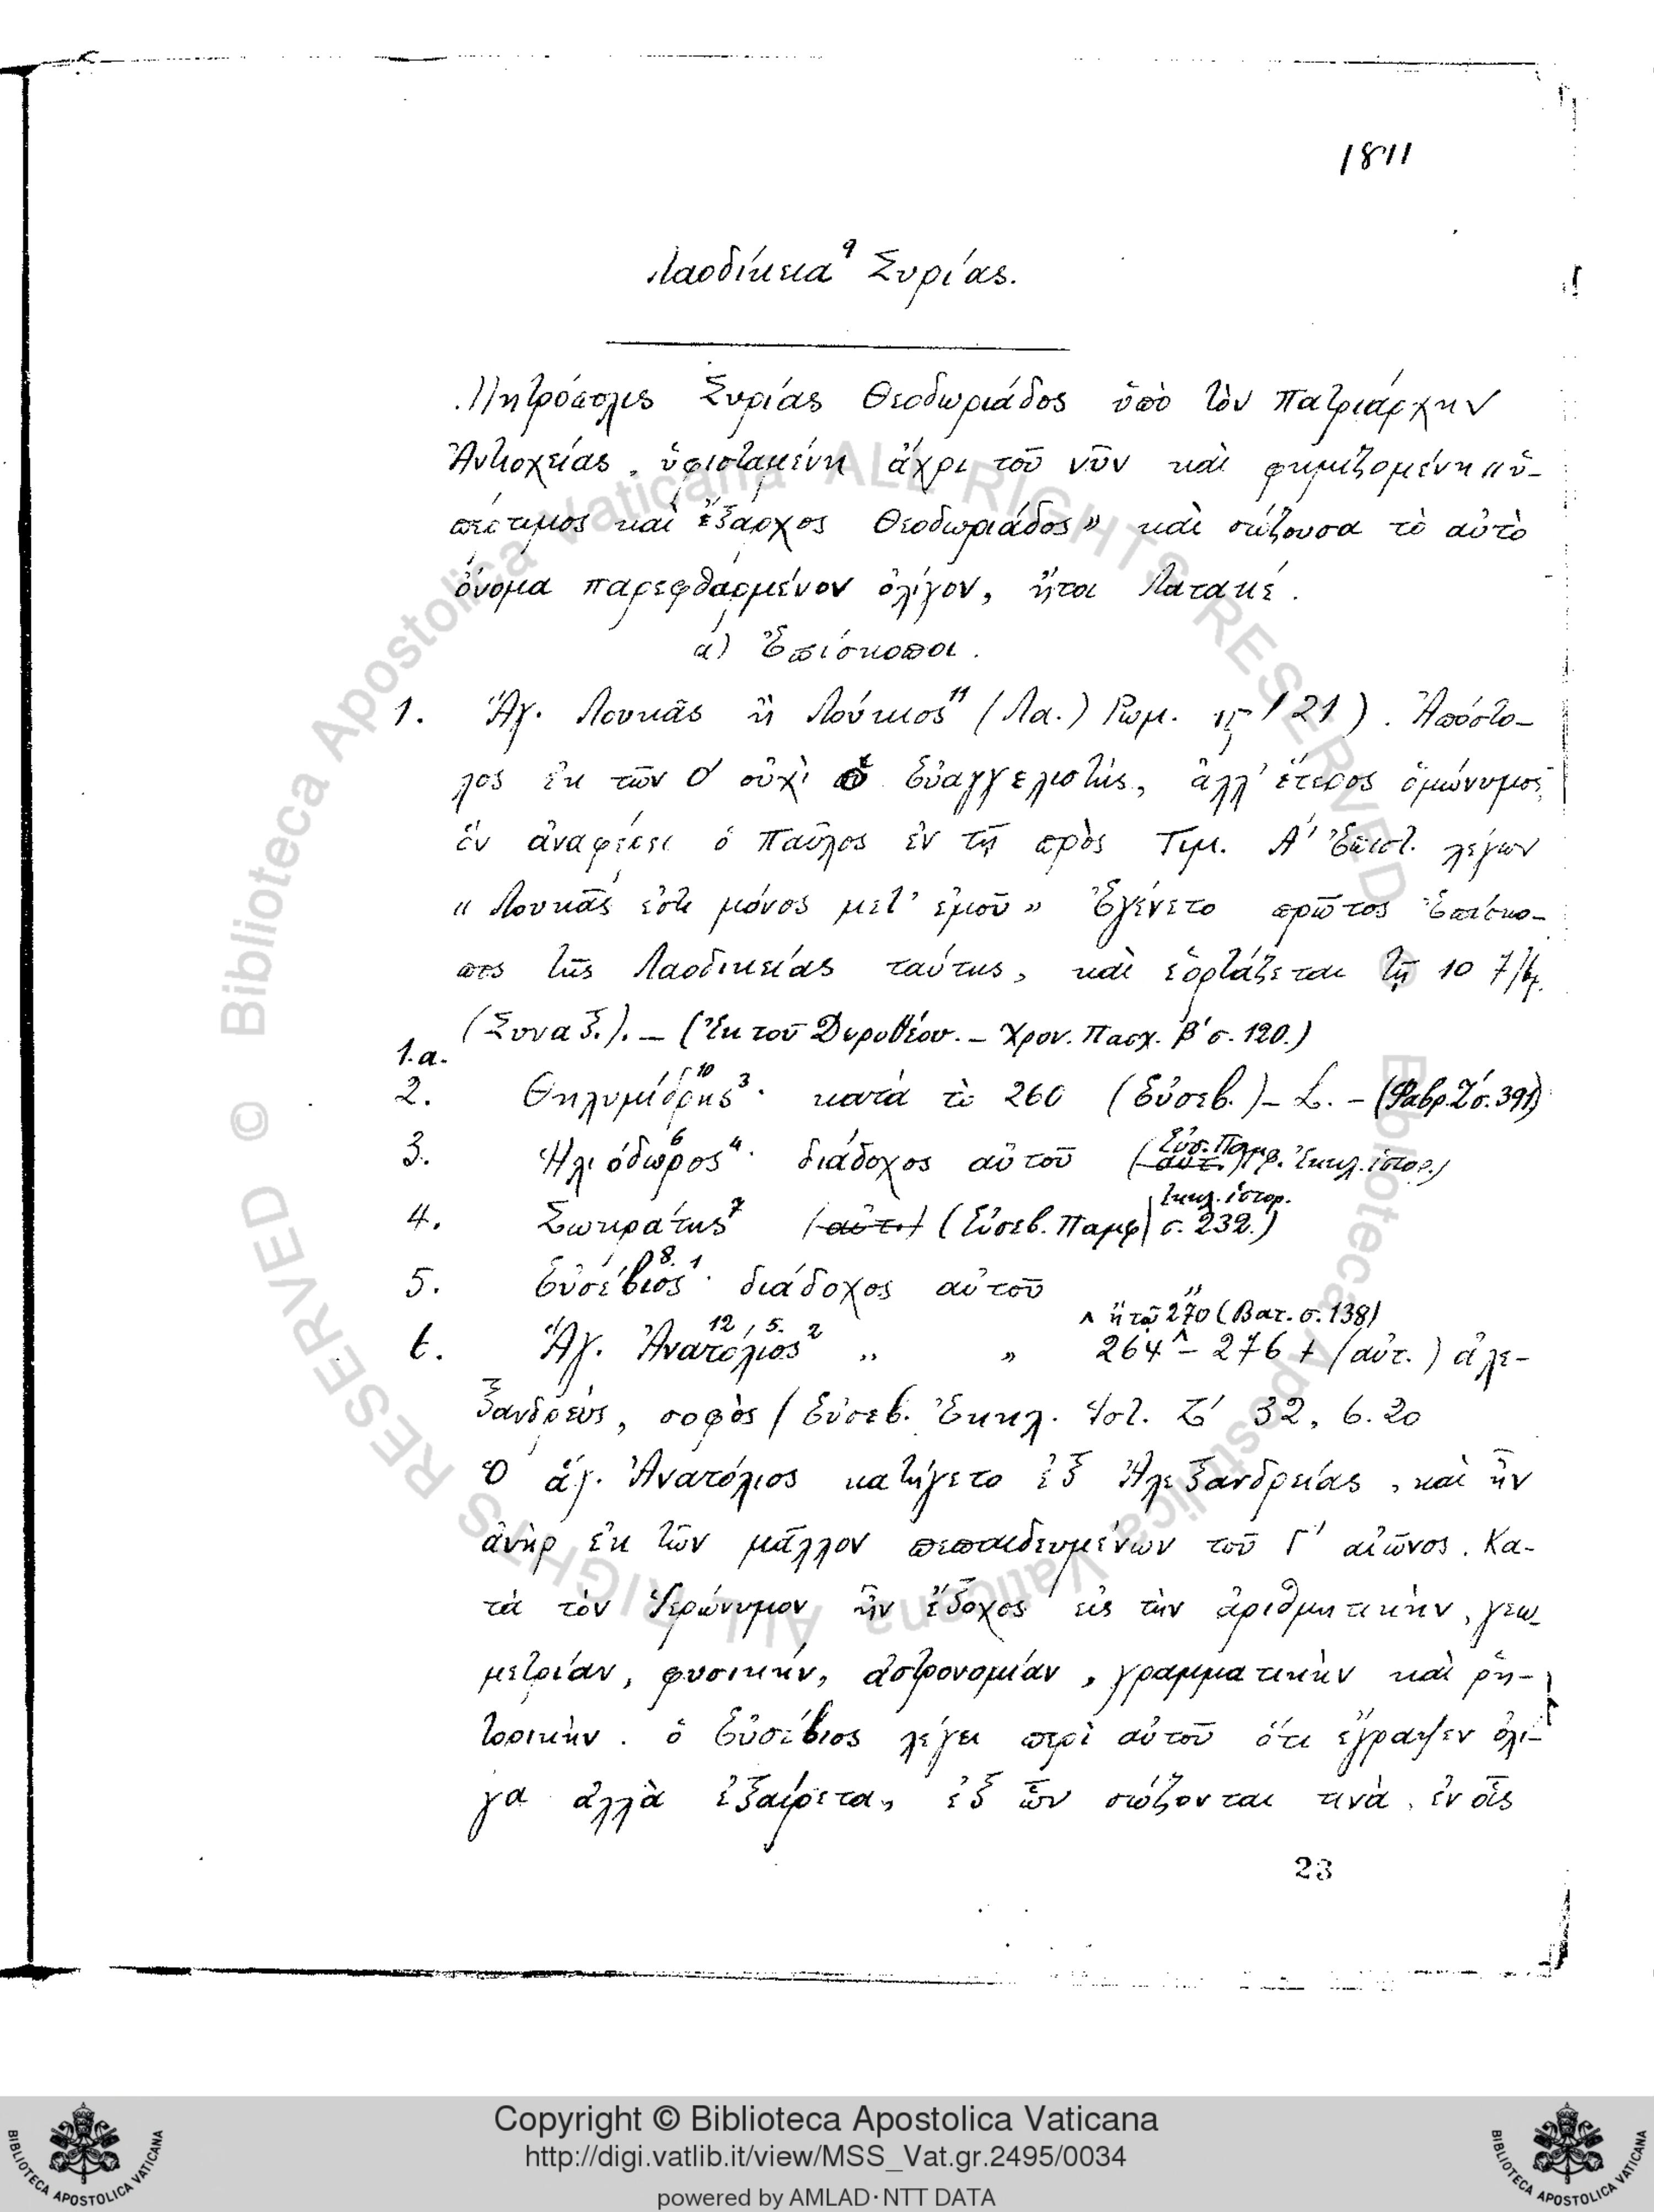 1811
Λαοδίκεια⁹ Συρίας.
Μητρόπολις Συρίας Θεοδωριάδος ὑπὸ τὸν Πατριάρχην
Ἀντιοχείας, ὑφισταμένη ἄχρι τοῦ νῦν καὶ φημιζομένη «ὑ-
πέρτιμος καὶ ἔξαρχος Θεοδωριάδος» καὶ σώζουσα τὸ αὐτὸ
ὄνομα παρεφθαρμένον ὀλίγον, ἤτοι Λατακέ.
α) Ἐπίσκοποι.
1. Ἁγ. Λουκᾶς ἢ Λούκιος¹¹ (Λα.) Ρωμ. ιϛ 21). Ἀπόστο-
λος ἐκ τῶν Ο' οὐχὶ ὁ Εὐαγγελιστής, ἀλλ' ἕτερος ὁμώνυμος,
ὃν ἀναφέρει ὁ Παῦλος ἐν τῇ πρὸς Τιμ. Α' Ἐπιστ. λέγων
«Λουκᾶς ἐστι μόνος μετ' ἐμοῦ» Ἐγένετο πρῶτος Ἐπίσκο-
πος τῆς Λαοδικείας ταύτης, καὶ ἑορτάζεται τῇ 10 7/βρ.
(Συναξ.). – (Ἐκ τοῦ Δωροθέου. – Χρον. Πασχ. β' σ. 120.)
1.α.
2. Θηλυμίδρης¹⁰ ³· κατὰ τὸ 260 (Εὐσεβ.) – L. – (Φαβρ. Ζ' σ. 391)
3. Ἡλιόδωρος⁶ ⁴· διάδοχος αὐτοῦ (αὐτ.) Εὐσ. Παμφ. Ἐκκλ. ἱστορ.)
4. Σωκράτης⁷ (αὐτ.) (Εὐσεβ. Παμφ| ἐκκλ. ἱστορ. σ. 232.)
5. Εὐσέβιος⁸· ¹· διάδοχος αὐτοῦ
^ ἢ τῷ 270 (Βατ. σ. 138)
6. Ἁγ. Ἀνατόλιος¹² ⁵· ² „ „ 264^ – 276 † (αὐτ.) ἀλε-
ξανδρεὺς, σοφὸς (Εὐσεβ. Ἐκκλ. Ἱστ. Ζ' 32, 6. 20
Ὁ ἅγ. Ἀνατόλιος κατήγετο ἐξ Ἀλεξανδρείας, καὶ ἦν
ἀνὴρ ἐκ τῶν μᾶλλον πεπαιδευμένων τοῦ Γ' αἰῶνος. Κα-
τὰ τὸν Ἱερώνυμον ἦν ἔξοχος εἰς τὴν ἀριθμητικὴν, γεω-
μετρίαν, φυσικήν, ἀστρονομίαν, γραμματικὴν καὶ ῥη-
τορικὴν. ὁ Εὐσέβιος λέγει περὶ αὐτοῦ ὅτι ἔγραψεν ὀλί-
γα ἀλλὰ ἐξαίρετα, ἐξ ὧν σώζονται τινὰ, ἐν οἷς
23
© Biblioteca Apostolica Vaticana ALL RIGHTS RESERVED © Biblioteca Apostolica Vaticana ALL RIGHTS RESERVED
Copyright © Biblioteca Apostolica Vaticana
http://digi.vatlib.it/view/MSS_Vat.gr.2495/0034
powered by AMLAD·NTT DATA
BIBLIOTECA APOSTOLICA VATICANA
BIBLIOTECA APOSTOLICA VATICANA